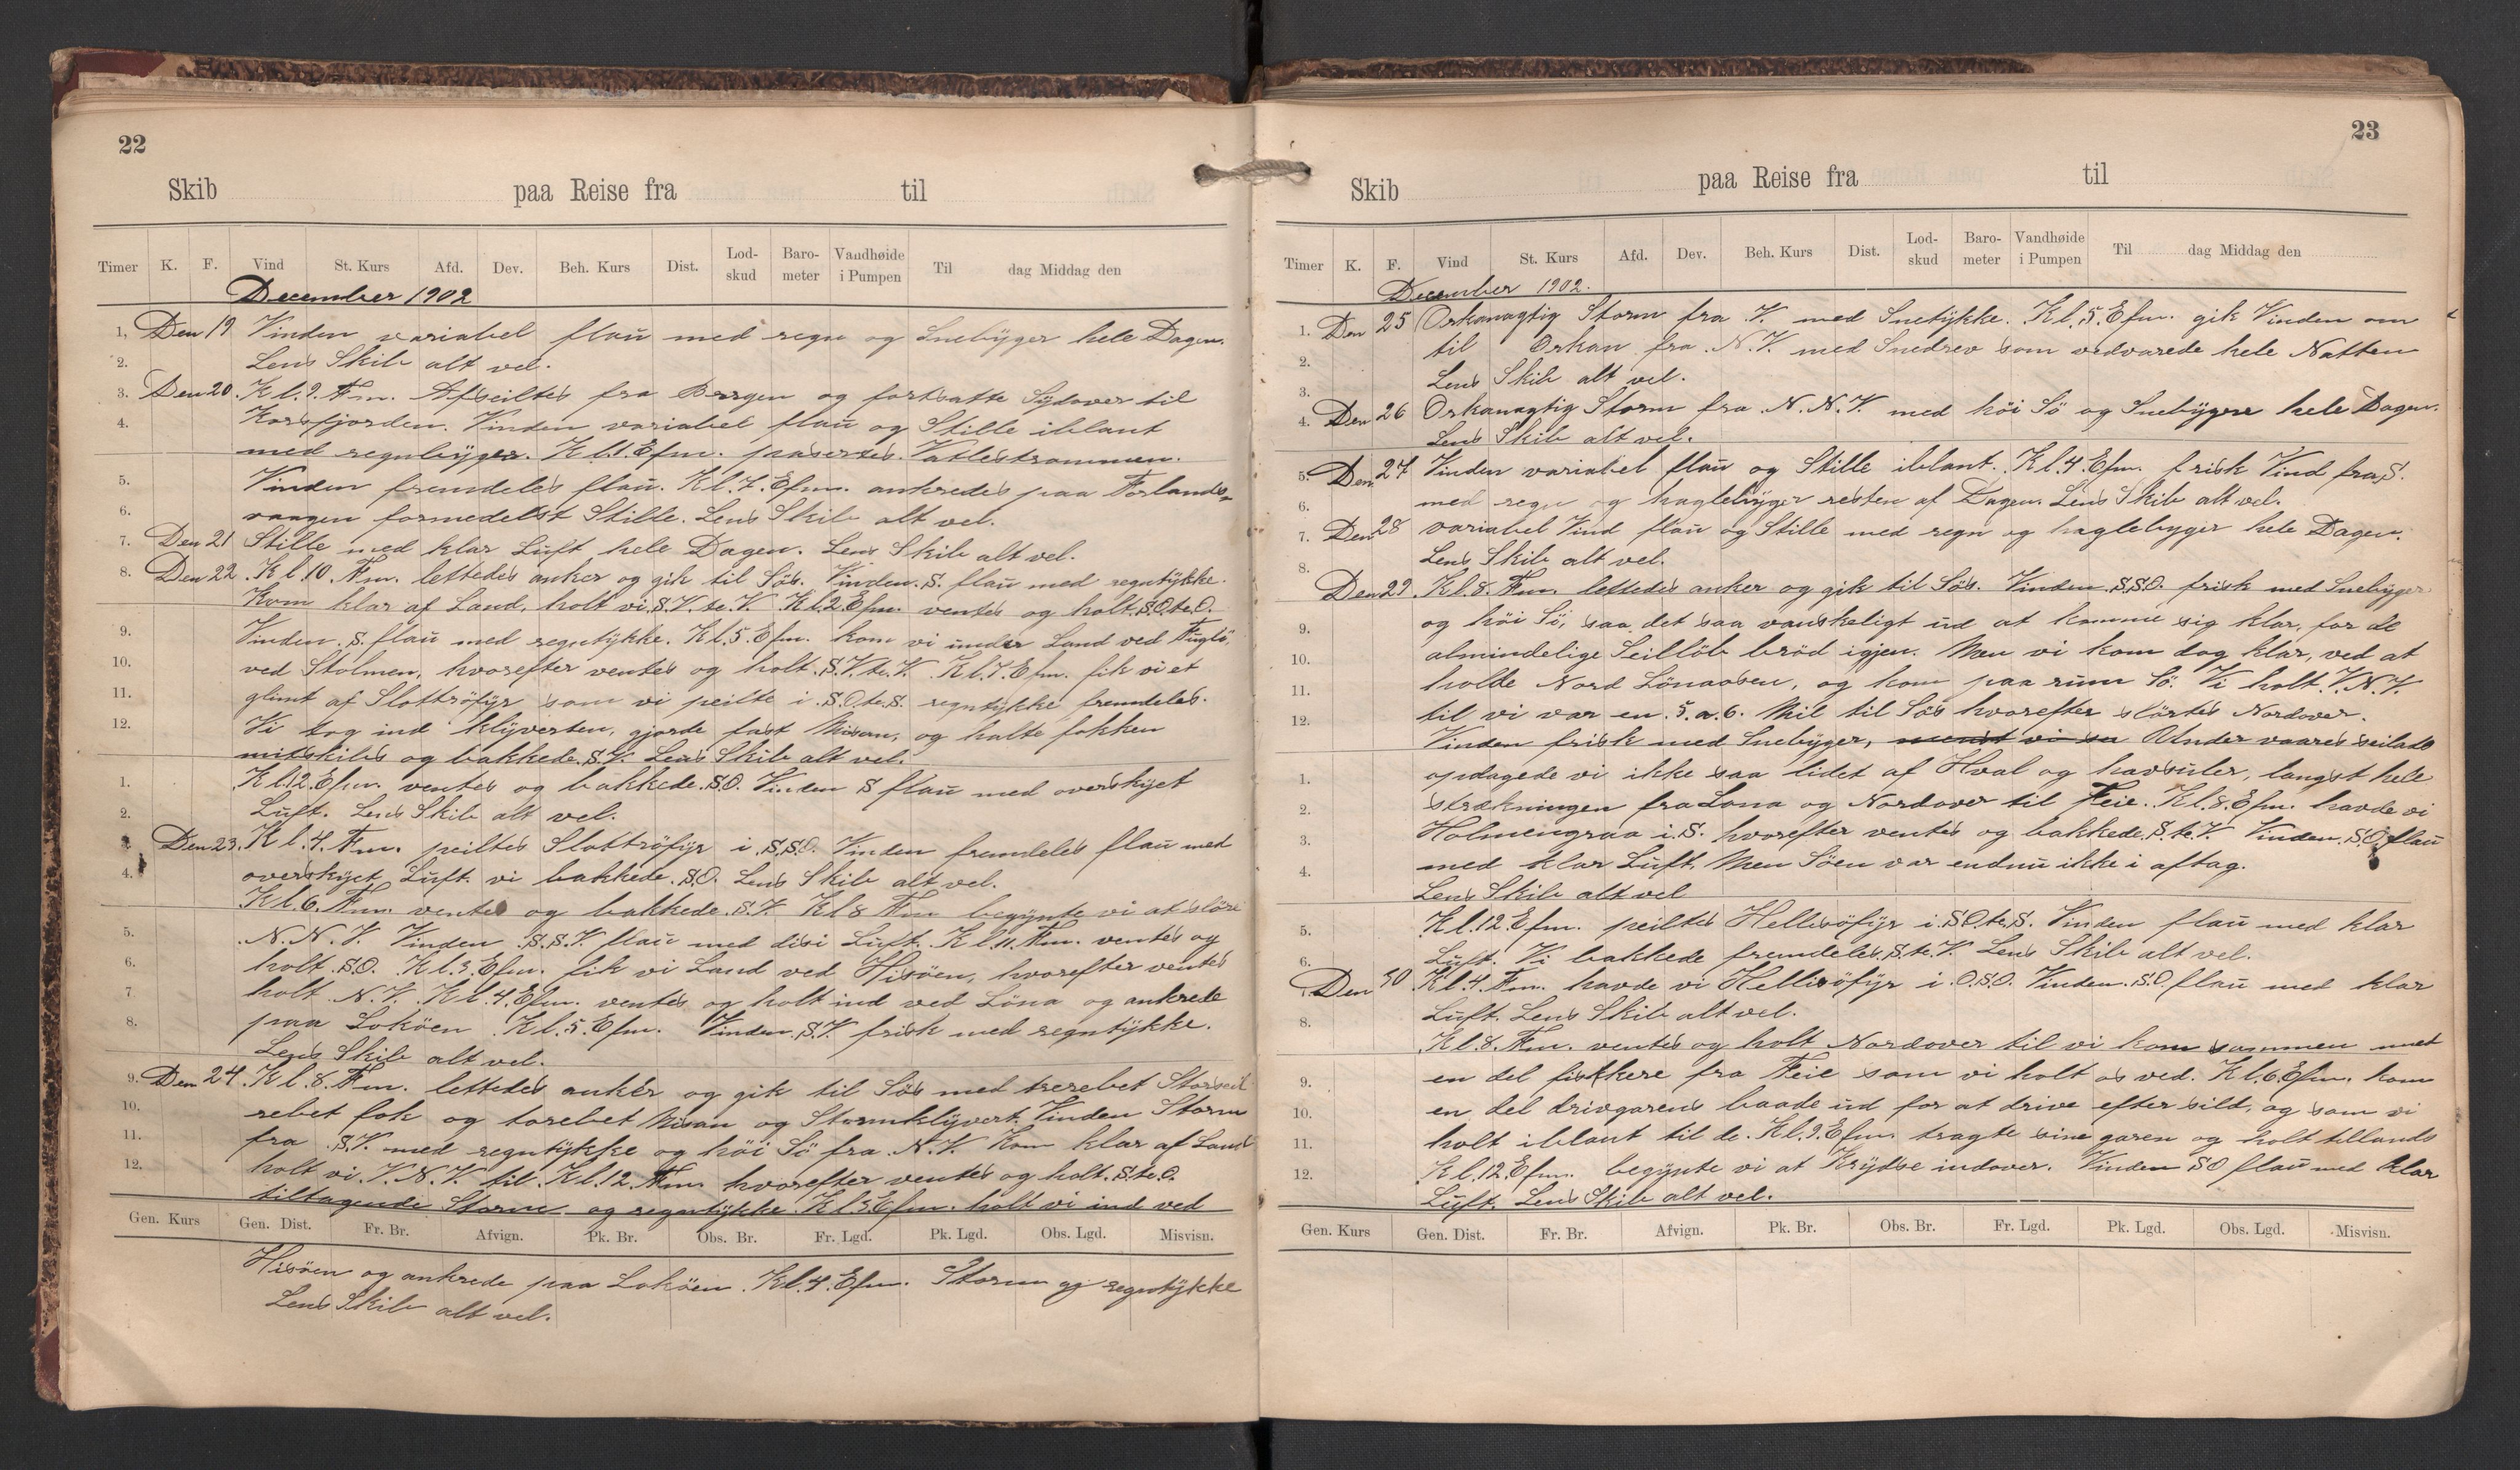 22
Skib paa Reise fra til
Timer K. F. Vind St. Kurs Afd. Dev. Beh. Kurs Dist. Lod-skud Baro-meter Vandhøide i Pumpen Til dag Middag den
December 1902
1. Den 19 Vinden variabel flaŭ med regn og Snebÿger hele Dagen.
2. Lens Skib alt vel.
3. Den 20. Kl. 9. Fm. Afseiltes fra Bergen og fortsatte Sÿdover til
4. Korsfjorden. Vinden variabel flaŭ og Stille iblant
med regnbÿger. Kl. 1. Efm. pasertes Vatlestrømmen.
5. Vinden fremdeles flaŭ. Kl. 7. Efm. ankredes paa Forlands-
6. vaagen formedelst Stille. Lens Skib alt vel.
7. Den 21 Stille med klar Lŭft hele Dagen. Lens Skib alt vel.
8. Den 22. Kl. 10. Fm. lettedes anker og gik til Søs. Vinden S. flaŭ med regntÿkke.
Kom klar af Land, holt vi S.V. te. V. Kl. 2 Efm. ventes og holt S.O. te. O.
9. Vinden S. flaŭ med regntÿkke. Kl. 5. Efm. kom vi ŭnder Land ved Fŭglö,
10. ved Stolmen, hvorefter ventes og holt S.V. te. V. Kl. 7. Efm. fik vi et
11. glimt af Slotteröfÿr som vi peilte i S.O. te. S. regntÿkke fremdeles.
12. Vi tog ind klÿverten, gjorde fast Misan, og halte fokken
mitskibs og bakkede S.V. Lens Skib alt vel.
1. Kl. 12. Efm. ventes og bakkede S.O. Vinden S flaŭ med overskÿet
2. Lŭft. Lens Skib alt vel.
3. Den 23. Kl. 4. Fm. peiltes Slotteröfÿr i S.S.O. Vinden fremdeles flaŭ med
4. overskÿet Lŭft. vi bakkede S.O. Lens Skib alt vel.
Kl. 6. Fm. ventes og bakkede S.V. Kl 8 Fm begÿnte vi at slöre
5. N.N.V. Vinden S.S.V. flaŭ med disi Lŭft. Kl. 11. Fm. ventes og
6. holt S.O. Kl. 3. Efm. fik vi Land ved Hisöen, hvorefter ventes
7. holt N.V. Kl. 4. Efm. ventes og holt ind ved Löna og ankrede
8. paa Loköen Kl. 5. Efm. Vinden S.V. frisk med regntÿkke.
Lens Skib alt vel.
9. Den 24. Kl. 8. Fm. lettedes anker og gik til Søs med trerebet Storseil
10. rebet fok og torebet Misan og Stormklÿvert. Vinden Storm
11. fra S.V. med regntÿkke og höi Sö fra N.V. Kom klar af Land
12. holt vi V.N.V. til Kl. 12. Fm. hvorefter ventes og holt S. te. O.
tiltagende Storm og regntÿkke Kl 3. Efm. holt vi ind ved
Gen. Kurs Gen. Dist. Fr. Br. Afvign. Pk. Br. Obs. Br. Fr. Lgd. Pk. Lgd. Obs. Lgd. Misvisn.
Hisöen og ankrede paa Loköen. Kl. 4. Efm. Storm og regntÿkke
Lens Skib alt vel.
23
Skib paa Reise fra til
Timer K. F. Vind St. Kurs Afd. Dev. Beh. Kurs Dist. Lod-skud Baro-meter Vandhøide i Pumpen Til dag Middag den
December 1902.
1. Den 25 Orkanagtig Storm fra V. med Snetÿkke. Kl. 5. Efm. gik Vinden om
2. til Orkan fra N.V. med Snedrev som vedvarede hele Natten
3. Lens Skib alt vel.
4. Den 26 Orkanagtig Storm fra N.N.V. med höi Sö og Snebÿger hele Dagen.
Lens Skib alt vel.
5. Den 27 Vinden variabel flaŭ og Stille iblant. Kl. 4. Efm. frisk Vind fra S.
6. med regn og haglebÿger resten af Dagen. Lens Skib alt vel.
7. Den 28 variabel Vind flaŭ og Stille med regn og haglebyger hele Dagen.
8. Lens Skib alt vel.
Den 29. Kl. 8. Fm. lettedes anker og gik til Søs. Vinden S.S.O. frisk med Snebÿger
9. og höi Sö, saa det saa vanskeligt ŭd at komme sig klar, for de
10. almindelige Seillöb bröd igjen. Men vi kom dog klar, ved at
11. holde Nord Lönaosen, og kom paa rŭm Sö. Vi holt V.N.V.
12. til vi var en 5. a. 6. Mil til Søs hvorefter slörtes Nordover.
Vinden frisk med Snebÿger, Under vaares seilads
1. opdagede vi ikke saa lidet af Hval og havsŭler, langst hele
2. strækningen fra Lona og Nordover til Feie. Kl. 8. Efm. havde vi
3. Holmengraa i S. hvorefter ventes og bakkede S. te. V. Vinden S.O. flaŭ
4. med klar Lŭft, Men Söen var endnŭ ikke i aftag.
Lens Skib alt vel
5. Kl. 12. Efm. peiltes Hellisöfÿr i S.O. te. S. Vinden flaŭ med klar
6. Lŭft. Vi bakkede fremdeles S. te. V. Lens Skib alt vel.
7. Den 30 Kl. 4. Fm. havde vi Hellisöfÿr i O.S.O. Vinden S.O. flaŭ med klar
8. Lŭft. Lens Skib alt vel.
Kl. 8. Fm. ventes og holt Nordover til vi kom sammen met
9. en del fiskere fra Feie som vi holt os ved. Kl. 6. Efm. kom
10. en del drivgarens baade ŭd for at drive efter sild, og som vi
11. holt iblant til de Kl. 9. Efm. tragte sine garen og holt tillands
12. Kl. 12. Efm. begÿnte vi at Krÿdse indover. Vinden S O flaŭ med klar
Lŭft. Lens Skib alt vel.
Gen. Kurs Gen. Dist. Fr. Br. Afvign. Pk. Br. Obs. Br. Fr. Lgd. Pk. Lgd. Obs. Lgd. Misvisn.